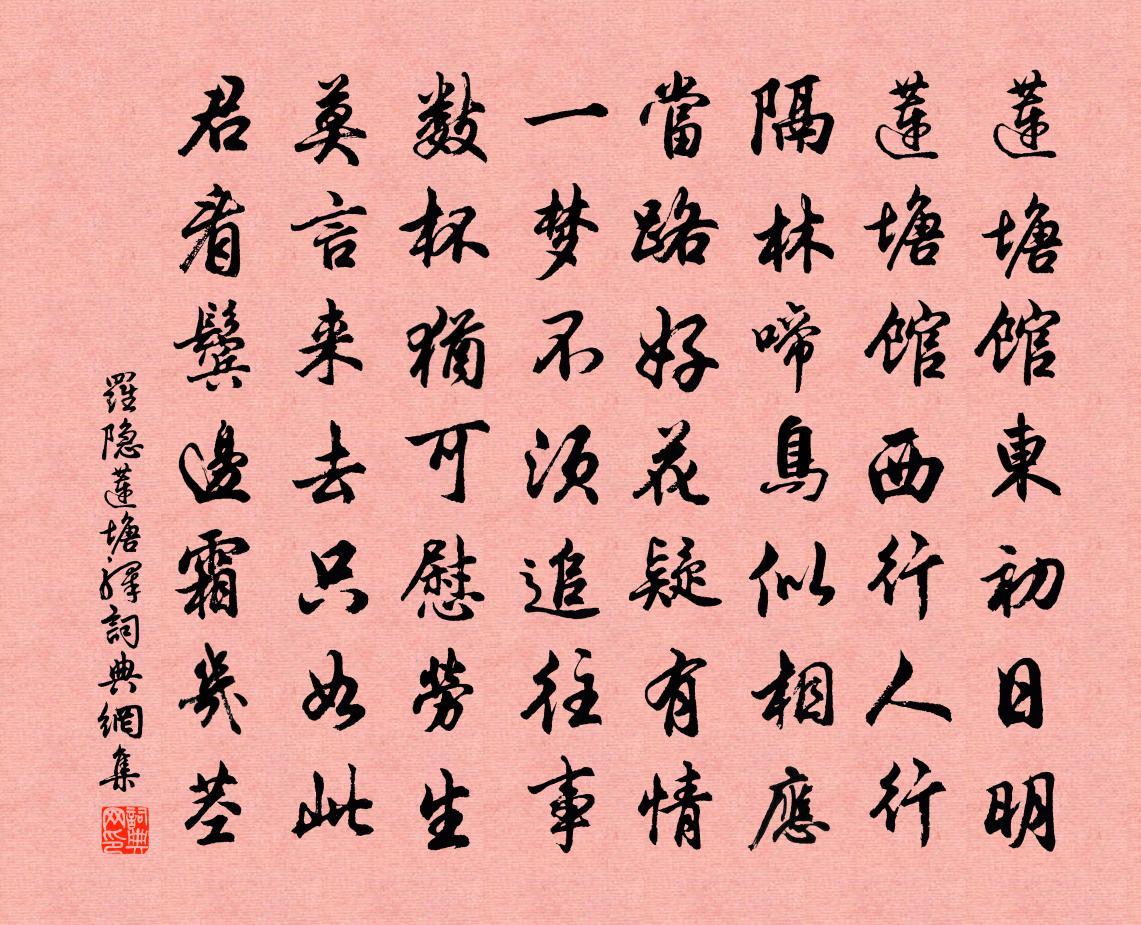 蓮塘馆東初日明
蓮塘馆西行人行
隔林啼鳥似相應
當路好花疑有情
一梦不须追往事
数杯猶可慰勞生
莫言来去只如此
君看鬓邊霜幾茎
羅隐蓮塘驛詞典網集
詞典网印